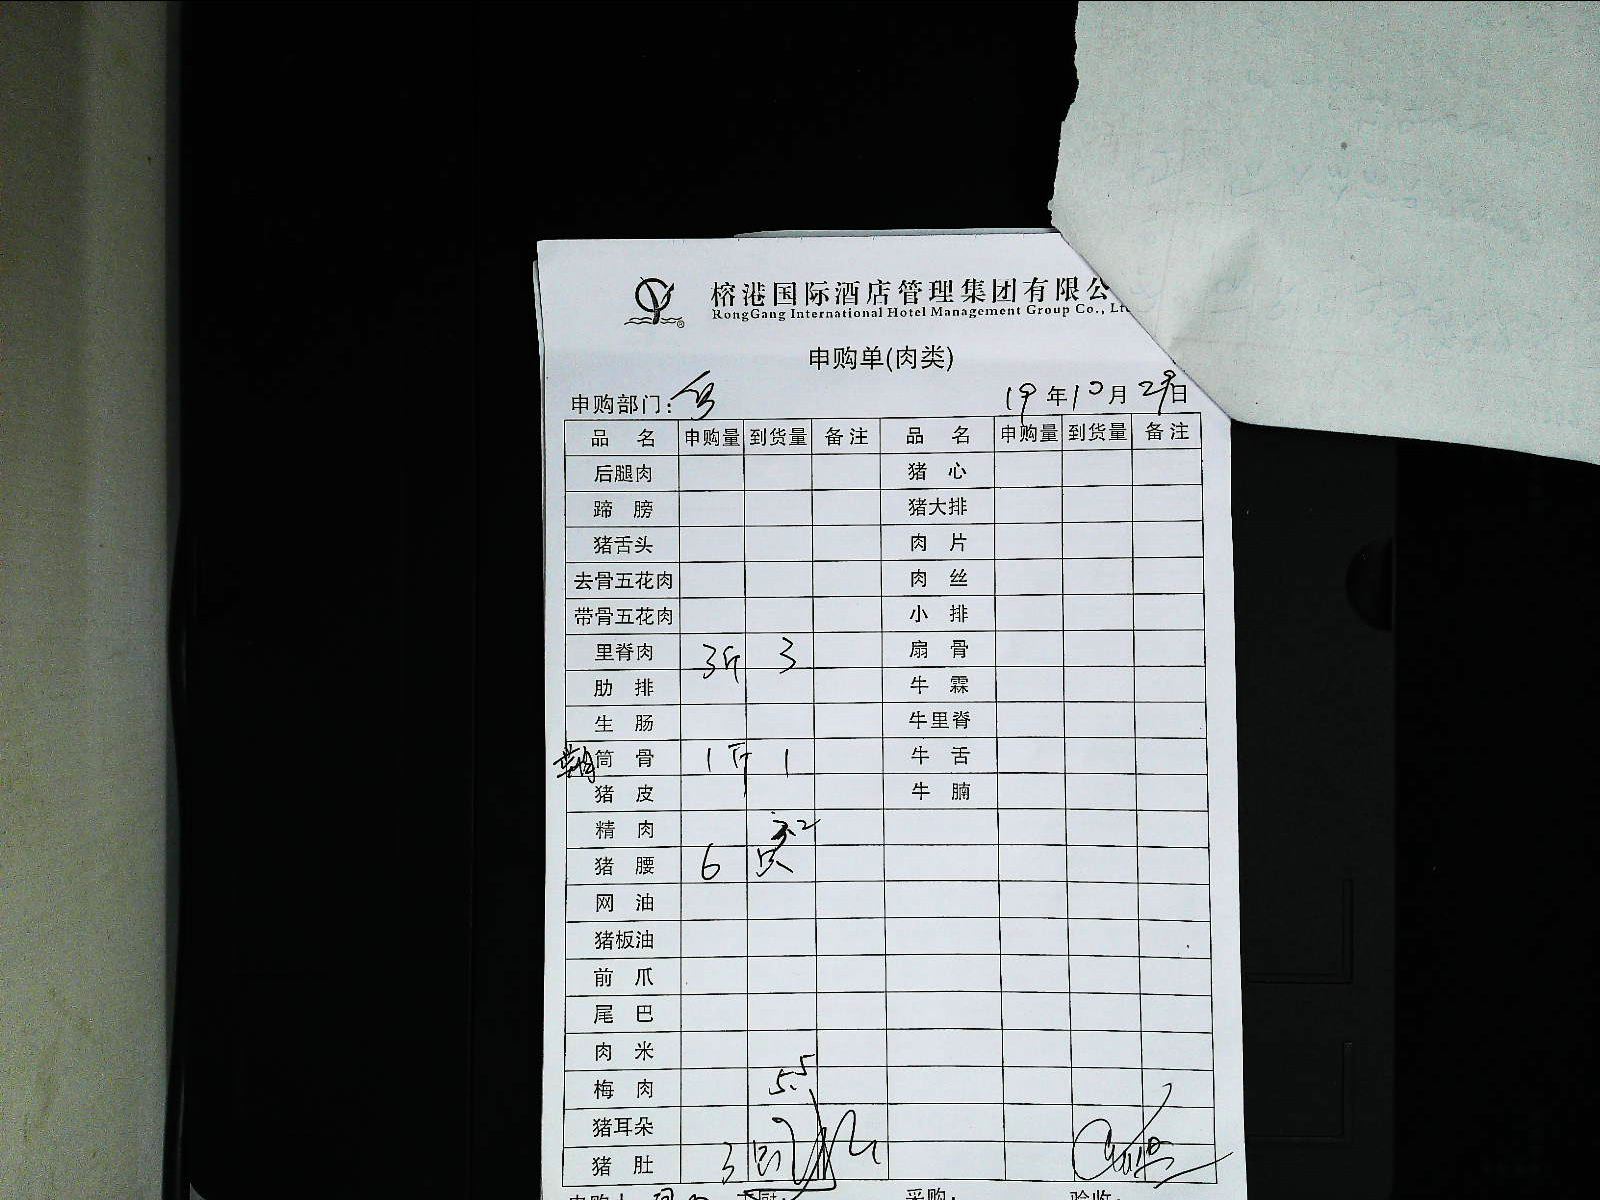 榕港国际酒店管理集团有限公
RongGang International Hotel Management Group Co., Lt
申购单(肉类)
申购部门: 19年10月29日
品 名 申购量 到货量 备注 品 名 申购量 到货量 备注
后腿肉 猪 心
蹄 膀 猪大排
猪舌头 肉 片
去骨五花肉 肉 丝
带骨五花肉 小 排
里脊肉 3斤 3 扇 骨
肋 排 牛 霖
生 肠 牛里脊
筒 骨 1斤 1 牛 舌
猪 皮 牛 腩
精 肉 3.2
猪 腰 6 只
网 油
猪板油
前 爪
尾 巴
肉 米
梅 肉 5.5
猪耳朵
猪 肚 3
采购: 验收: